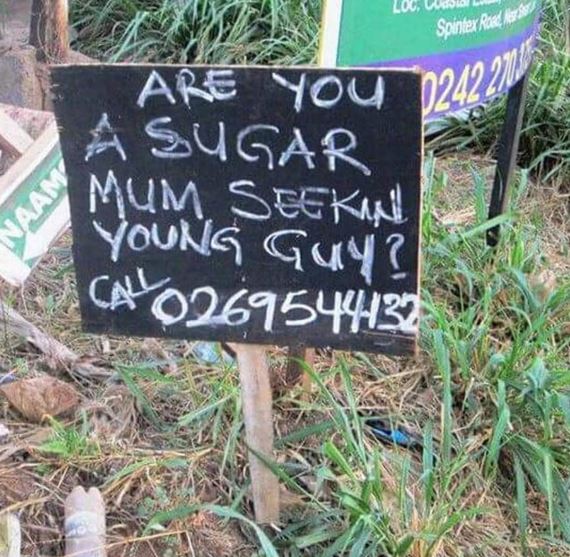 LOC: Coastal
Spintex Road, Near
0242 270
NAAM
ARE YOU
A SUGAR
MUM SEEKIN
YOUNG GUY?
CALL 0269544132